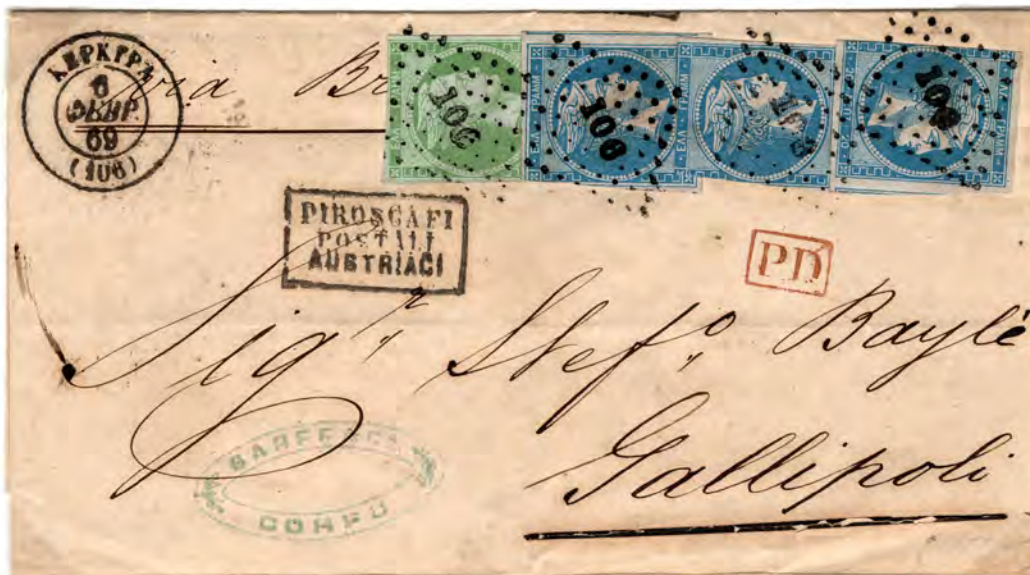 ΚΕΡΚΥΡΑ
6
ΦΕΒΡ.
69
(106)
via
106
106
106
ΕΛΛ ΓΡΑΜΜ
PIROSCAFI
POSTALI
AUSTRIACI
PD
Sigr Stefo Baylé
Gallipoli
CORFU